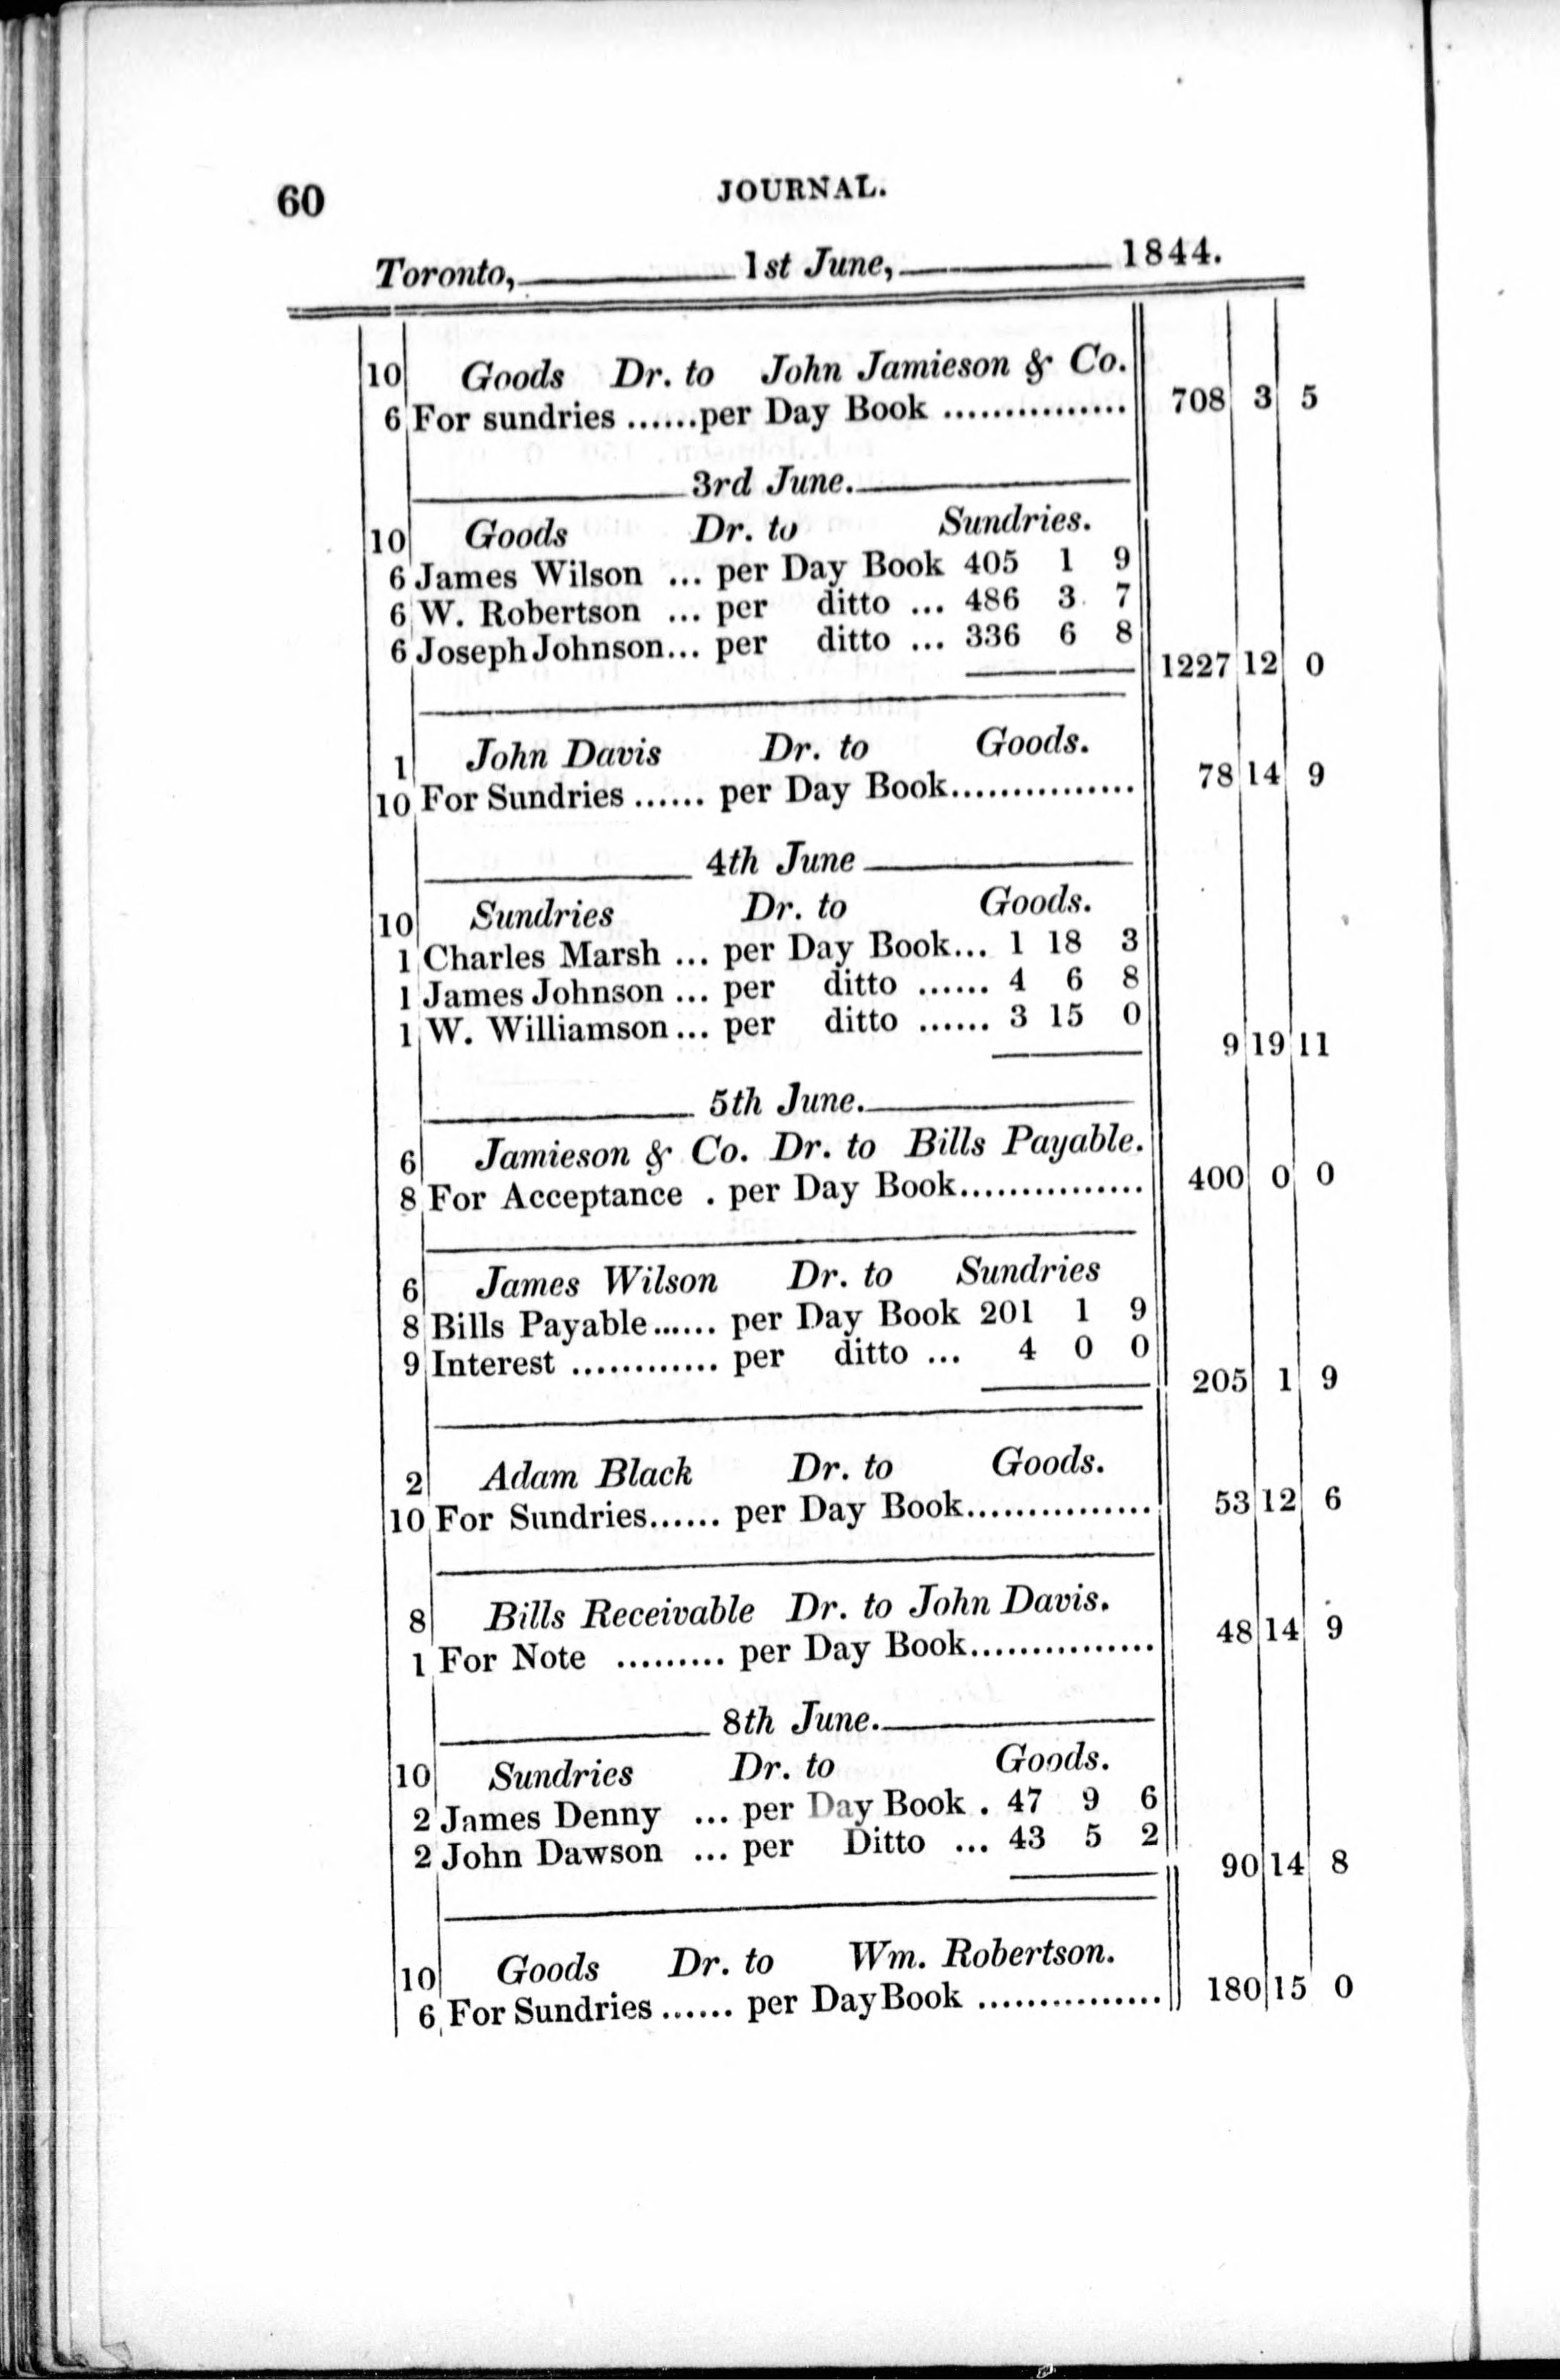 60
JOURNAL.
Toronto, 1st June, 1844.
10 Goods Dr. to John Jamieson & Co.
6 For sundries ......per Day Book ............... 708 3 5
3rd June.
10 Goods Dr. to Sundries.
6 James Wilson ... per Day Book 405 1 9
6 W. Robertson ... per ditto ... 486 3 7
6 Joseph Johnson... per ditto ... 336 6 8
1227 12 0
1 John Davis Dr. to Goods.
10 For Sundries ...... per Day Book............... 78 14 9
4th June
10 Sundries Dr. to Goods.
1 Charles Marsh ... per Day Book... 1 18 3
1 James Johnson ... per ditto ...... 4 6 8
1 W. Williamson ... per ditto ...... 3 15 0
9 19 11
5th June.
6 Jamieson & Co. Dr. to Bills Payable.
8 For Acceptance . per Day Book............... 400 0 0
6 James Wilson Dr. to Sundries
8 Bills Payable...... per Day Book 201 1 9
9 Interest ............ per ditto ... 4 0 0
205 1 9
2 Adam Black Dr. to Goods.
10 For Sundries...... per Day Book............... 53 12 6
8 Bills Receivable Dr. to John Davis.
1 For Note ......... per Day Book............... 48 14 9
8th June.
10 Sundries Dr. to Goods.
2 James Denny ... per Day Book . 47 9 6
2 John Dawson ... per Ditto ... 43 5 2
90 14 8
10 Goods Dr. to Wm. Robertson.
6 For Sundries ...... per Day Book ............... 180 15 0